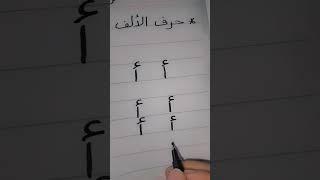 * حرف الألف
أ أ
أ أ
أ أ